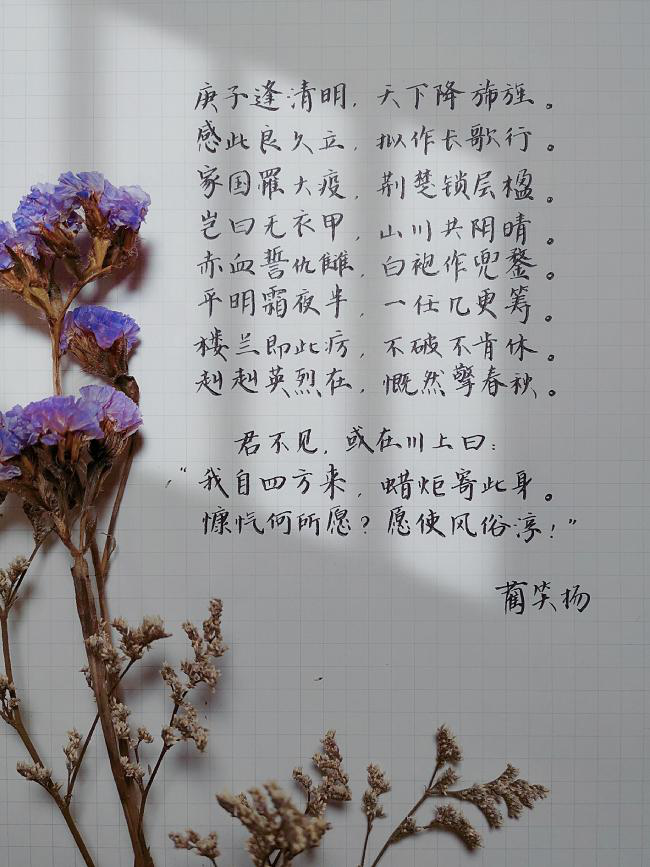 庚子逢清明，天下降旆旌。
感此良久立，拟作长歌行。
家国罹大疫，荆楚锁层楹。
岂曰无衣甲，山川共阴晴。
赤血誓仇雠，白袍作兜鍪。
平明霜夜半，一任几更筹。
楼兰即此疠，不破不肯休。
赳赳英烈在，慨然擎春秋。
君不见，或在川上曰：
“我自四方来，蜡炬寄此身。
慷忾何所愿？愿使风俗淳！”
蔺笑杨